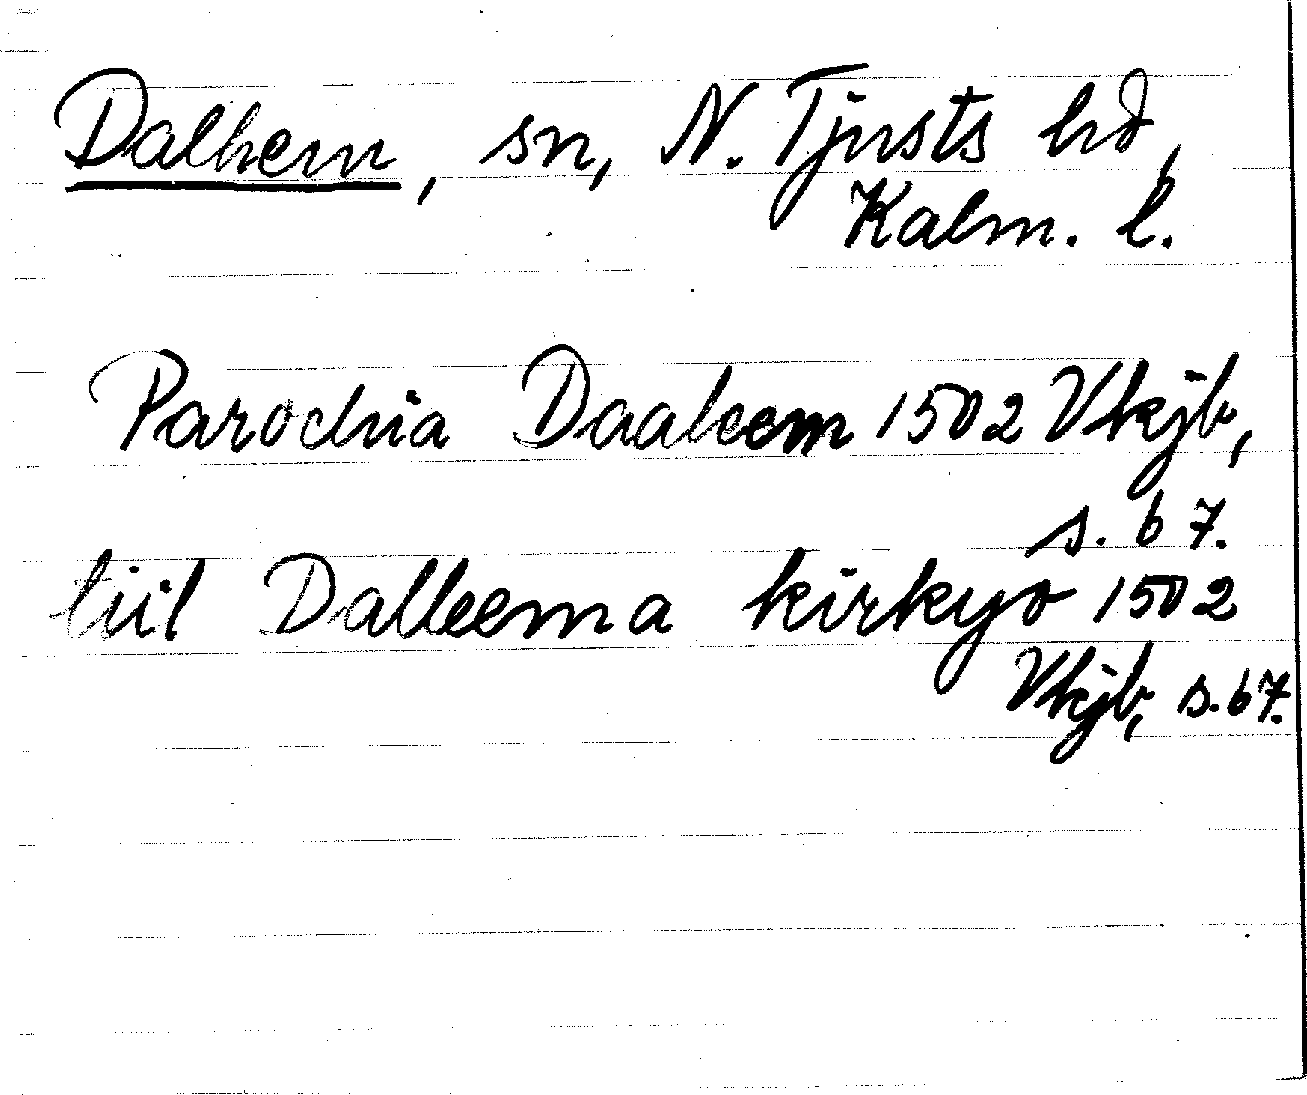 Dalhem, sn, N. Tjusts hd,
Kalm. l.
Parochia Daaleem 1502 Vkjb,
s. 67.
tiil Dalleema kirkyo 1502
Vkjb, s. 67.